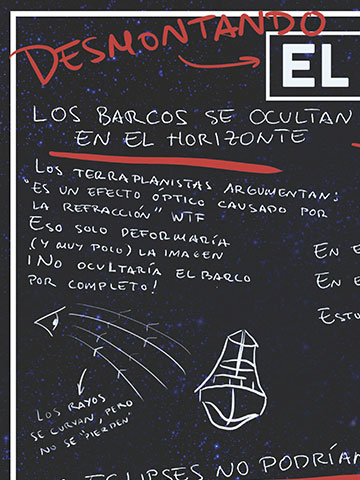 DESMONTANDO
EL
LOS BARCOS SE OCULTAN
EN EL HORIZONTE
LOS TERRAPLANISTAS ARGUMENTAN:
"ES UN EFECTO ÓPTICO CAUSADO POR
LA REFRACCIÓN" WTF
ESO SOLO DEFORMARÍA
(Y MUY POCO) LA IMAGEN
¡NO OCULTARÍA EL BARCO
POR COMPLETO!
EN E
EN E
ESTU
LOS RAYOS
SE CURVAN, PERO
NO SE "PIERDEN"
ECLIPSES NO PODRÍAN